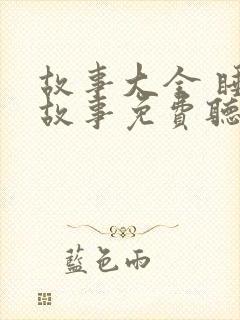 故事大全 睡
故事免費聽
藍色雨